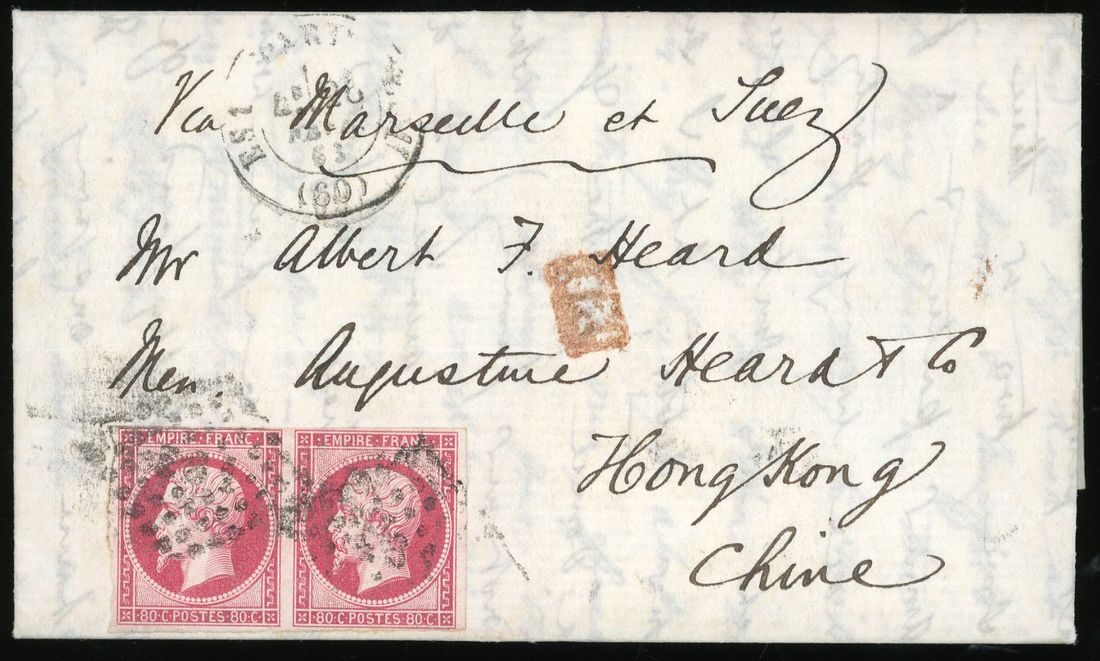 Via Marseille et Suez
63
(60)
Mr Albert F. Heard
Mess. Augustine Heard & Co
Hong Kong
Chine
EMPIRE · FRANC · EMPIRE · FRANC ·
80·C·POSTES·80·C· 80·C·POSTES·80·C·